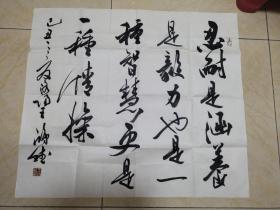 忍耐是涵養
是毅力也是一
種智慧更是
一種情操
己丑之夏